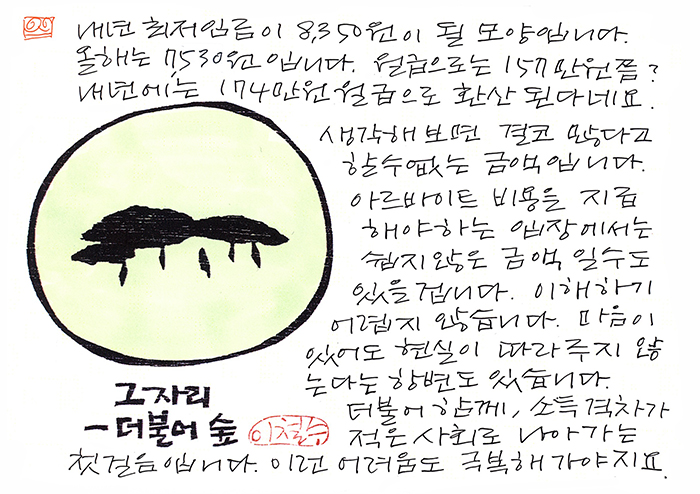 내년 최저임금이 8,350원이 될 모양입니다.
올해는 7,530원입니다. 월급으로는 157만원쯤?
내년에는 174만원 월급으로 환산 된다네요.
생각해 보면 결코 많다고
할수 없는 금액입니다.
아르바이트 비용을 지급
해야하는 입장에서는
쉽지않은 금액 일수도
있을 겁니다. 이해하기
어렵지 않습니다. 마음이
있어도 현실이 따라주지 않
는다는 항변도 있습니다.
더불어 함께, 소득격차가
적은 사회로 나아가는
첫걸음입니다. 이런 어려움도 극복해 가야지요.
그자리
—더불어 숲
이철수